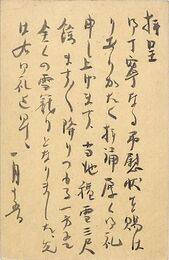 拝呈
御丁寧なる御慰状を賜は
りありがたく拝誦厚く御礼
申し上げます 当地積雪三尺
餘ますく降りつもる一方にて
全くの雪籠りとなりました 先
は右御礼迄 早々
一月十